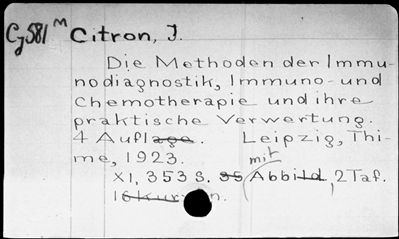 Cy 581 M Citron, J.
Die Methoden der Immu-
nodiagnostik, Immuno- und
Chemotherapie und ihre
praktische Verwertung.
4 Auflage. Leipzig, Thi-
me, 1923.
mit
XI, 353 S. 35 Abbild, 2 Taf.
16